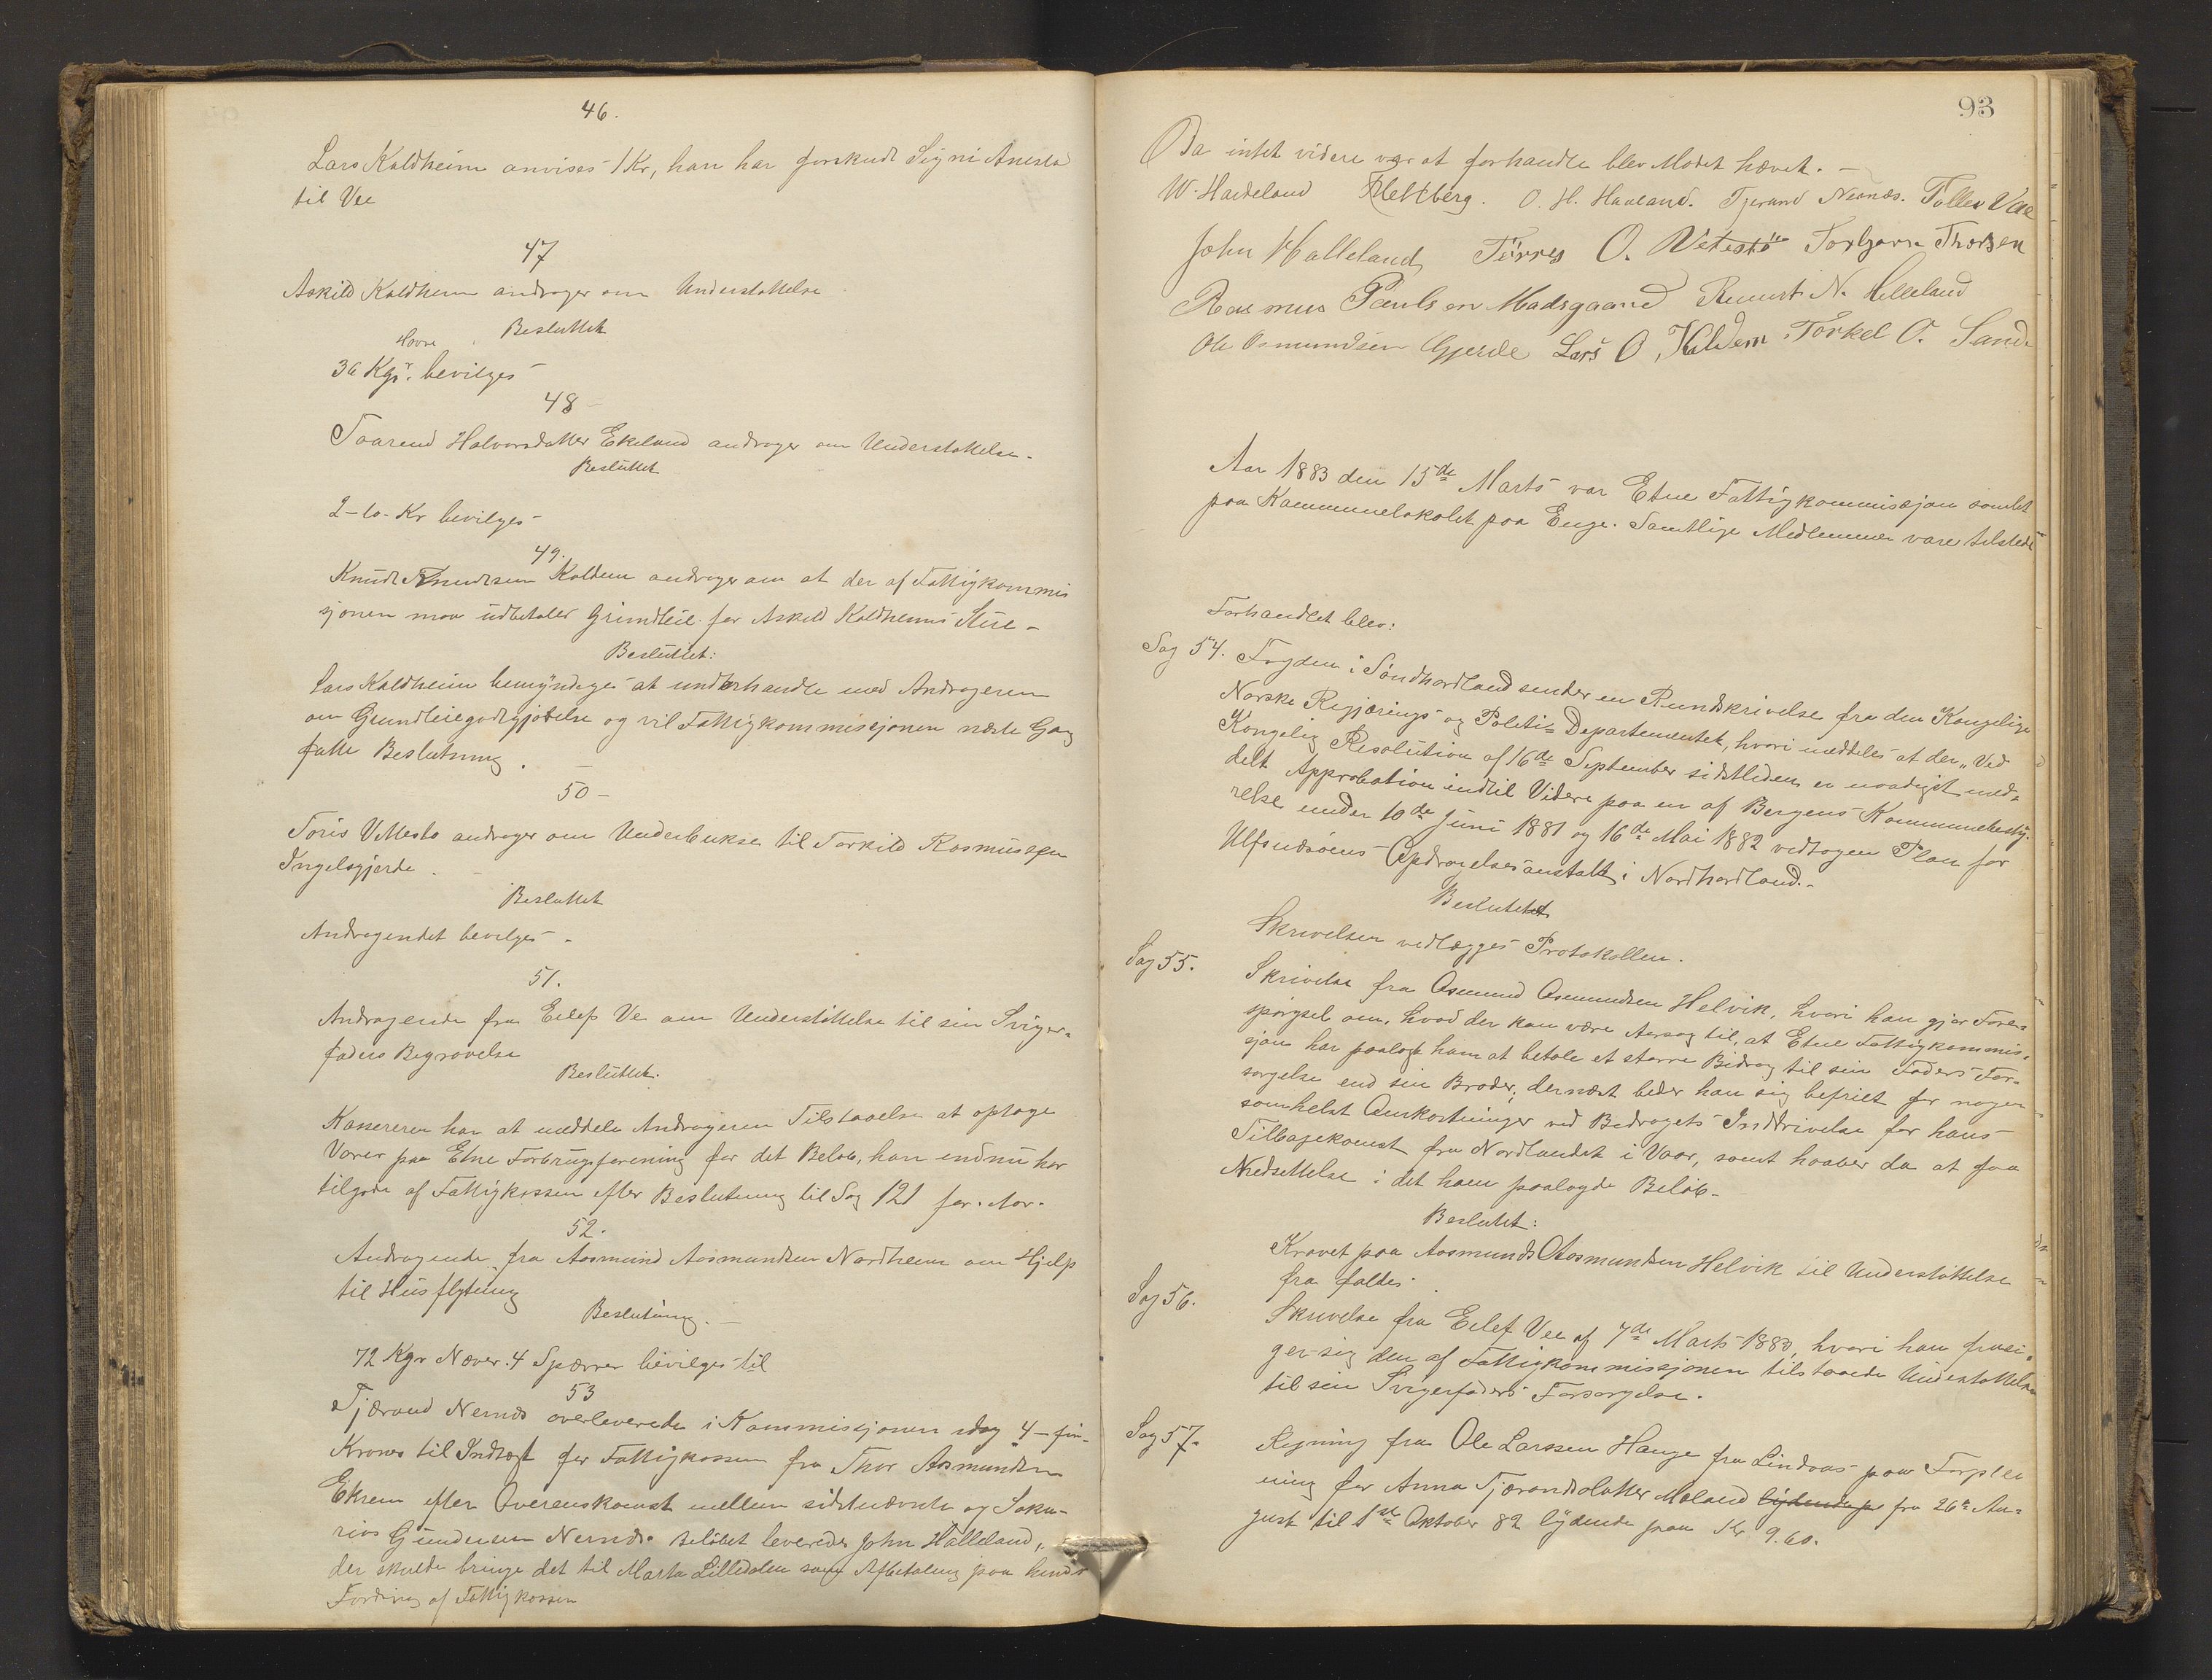 46.
Lars Kaldheim anvises 1 Kr, han har forskudt Signi Anesta
til Vee
47
Askild Kaldheim andrager om Understøttelse
Besluttet
Havre
36 Kgr. bevilges
48
Taarend Halvorsdatter Ekeland andrager om Understøttelse.
Besluttet
2-10- Kr bevilges
49.
Knudt Knudtsen Kaldem andrager om at der af Fattigkommis
sjonen maa udbetales Grundleie for Askild Kaldheims Stue -
Besluttet:
Lars Kaldheim bemyndiges at underhandle med Andrageren
om Grundleiegodtgjørelse og vil Fattigkommissjonen næste Gang
fatte Beslutning.
50 -
Toris Vettesto andrager om Underbukse til Torkild Rasmussen
Ingelsgjerde.
Besluttet
Andragendet bevilges -
51.
Andragende fra Eilef Ve om Understøttelse til sin Sviger-
faders Begravelse
Besluttet.
Kassereren har at meddele Andrageren Tilstaaelse at optage
Varer paa Etne Forbrugsforening for det Beløb, han endnu har
tilgode af Fattigkassen efter Beslutning til Sag 121 for. Aar.
52.
Andragende fra Aasmund Aasmundsen Nordheim om Hjelp
til Husflytning
Beslutning. -
72 Kgr Næver. 4 Sparrer bevilges til
53
Tjærand Nernæs overleverede i Kommissjonen idag 4 - fire
Kroner til Indtægt for Fattigkassen fra Thor Asmundsen
Ekrem efter Overenskomst mellem sidstnævnte og
Gundersen Nernæs. Beløbet leveredes John Halleland,
der skulde bringe det til Marta Lilledalen som Afbetaling paa hendes
Fordring af Fattigkassen
93
Da intet videre var at forhandle blev Mødet hævet. -
W. Hardeland Heltberg. O. H. Haaland. Tjerand Nernæs. Tollev Vae
John Halleland Törres O. Vetestø Torbjørn Thorsen
Rasmus Paulsen Madsgaard N. Helleland
Ole Osmundsen Gjerde Lars O. Kaldem. Torkel O. Sande
Aar 1883 den 15de Marts var Etne Fattigkommissjon samlet
paa Kommunelokalet paa Enge. Samtlige Medlemmer vare tilstede
Forhandlet blev:
Sag 54. Fogden i Søndhordland sender en Rundskrivelse fra den Kongelige
Norske Regjerings og Politi-Departementet, hvori meddeles at der „Ved
Kongelig Resolution af 16de September sidstleden er naadigst med-
delt Approbation indtil Videre paa en af Bergens Kommunebesty-
relse under 10de Juni 1881 og 16de Mai 1882 vedtagen Plan for
Ulfsnesøens Opdragelsesanstalt i Nordhordland. -
Besluttet
Skrivelsen vedlægges Protokollen.
Sag 55.
Skrivelse fra Osmund Osmundsen Helvik, hvori han gjør Fore-
spørgsel om, hvad der kan være Aarsag til, at Etne Fattigkommis-
sjon har paalagt ham at betale et større Bidrag til sin Faders For-
sørgelse end sin Broder; dernæst beder han sig befriet for nogen-
somhelst Omkostninger ved Bidragets Inddrivelse før hans
Tilbagekomst fra Nordlandet i Vaar, samt haaber da at faa
Nedsettelse i det ham paalagde Beløb -
Besluttet:
Kravet paa Aasmund Aasmundsen Helvik til Understøttelse
fra faldes.
Sag 56.
Skrivelse fra Eilef Vee af 7de Marts 1883, hvori han frasi-
ger sig den af Fattigkommissjonen tilstaaede Understøttelse
til sin Svigerfaders Forsørgelse.
Sag 57.
Regning fra Ole Larssen Hauge fra Lindaas paa Forplei
ning for Anna Tjærandsdatter Moland lydende paa fra 26de Au-
gust til 1ste Oktober 82 lydende paa Kr 9.60.